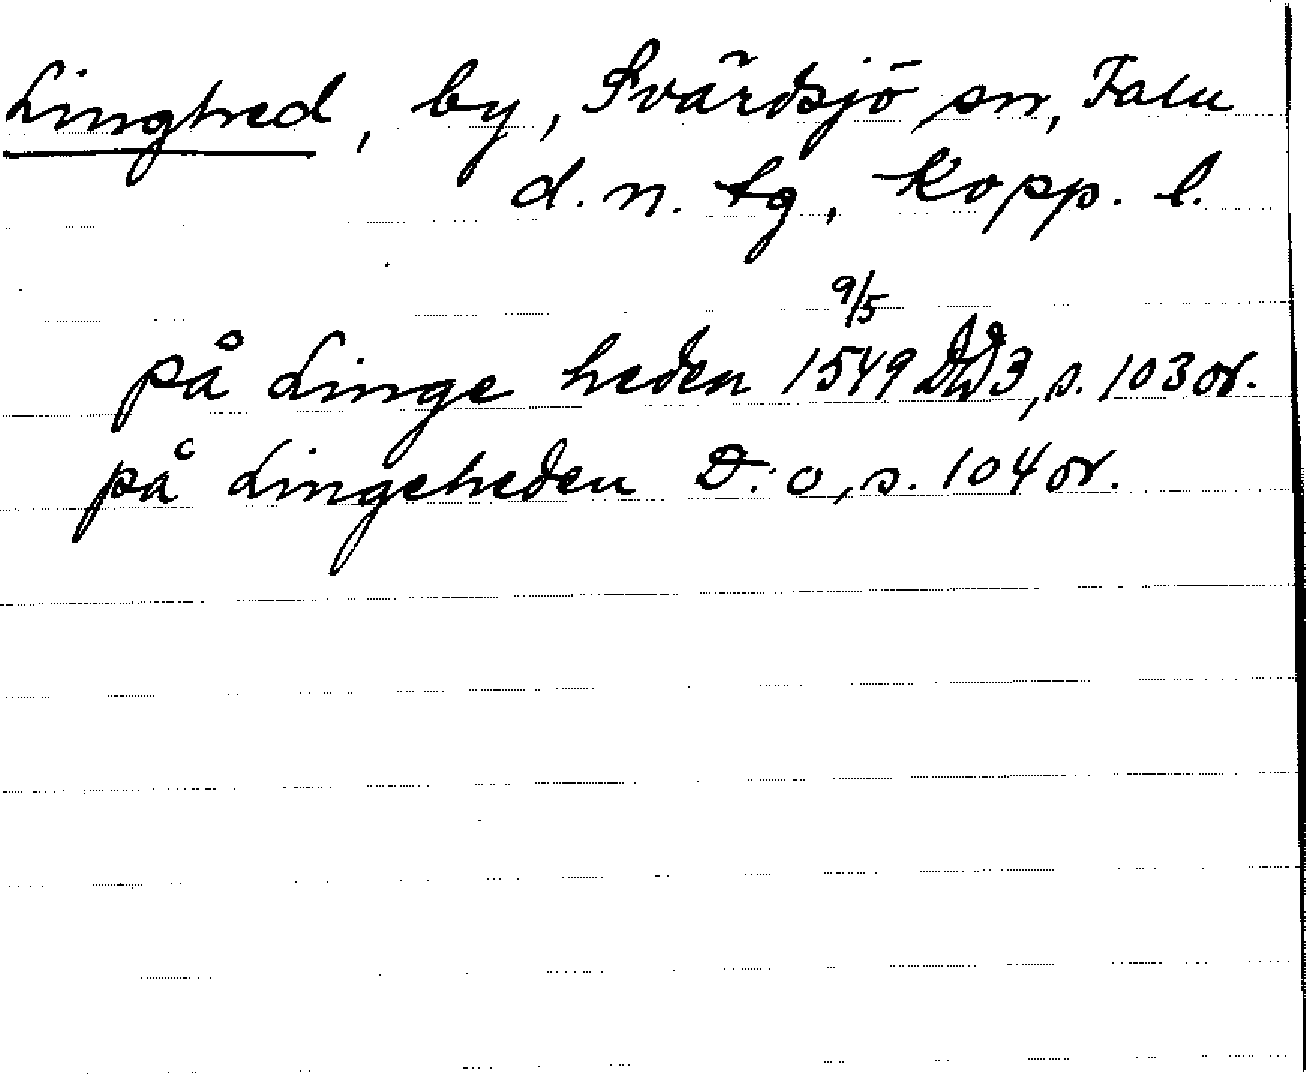 Linghed, by, Svärdsjö sn, Falu
d. n. tg, Kopp. l.
9/5
på Linge heden 1549 DD 3, s. 103 or.
på Lingeheden D:o, s. 104 or.